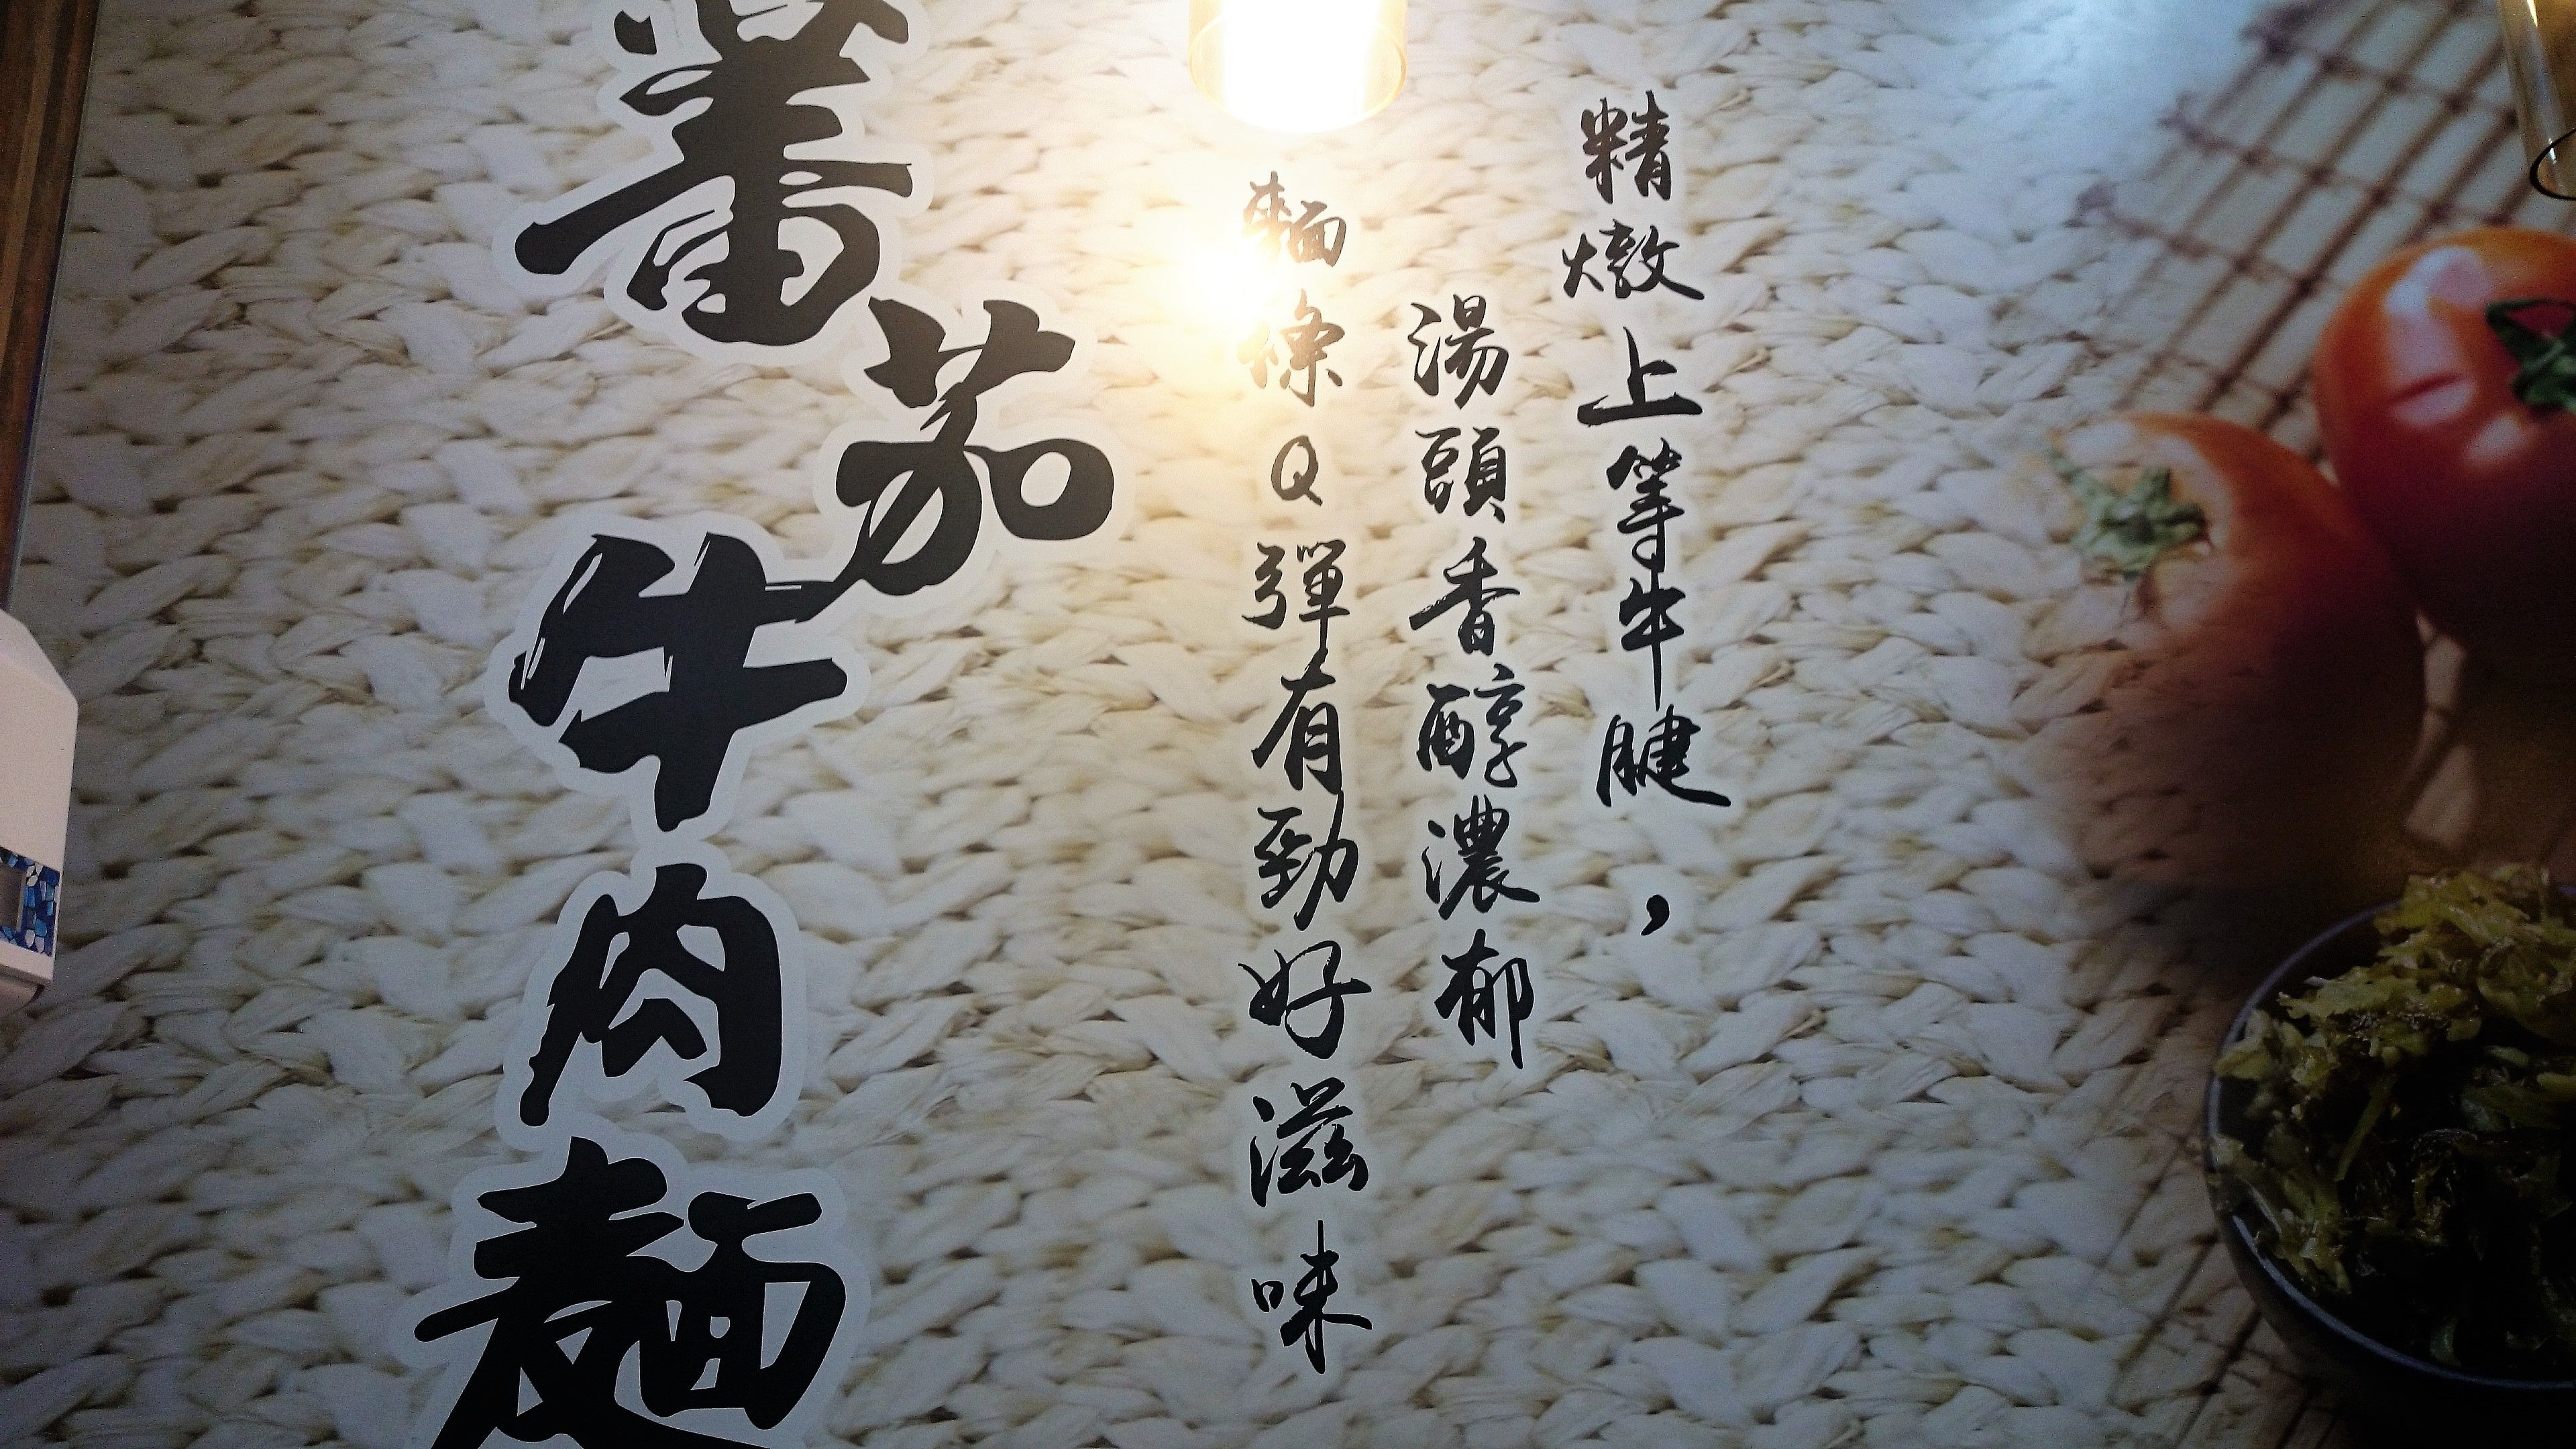 精燉上等牛腱，
湯頭香醇濃郁
麵條Q彈有勁好滋味
蕃茄牛肉麵